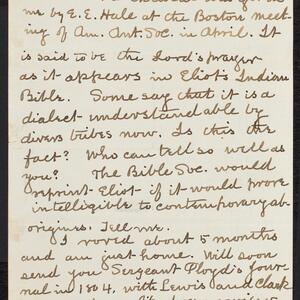 me by E. E. Hale at the Boston meet-
ing of Am. Ant. Soc. in April. It
is said to be the Lord's prayer
as it appears in Eliot's Indian
Bible. Some say that it is a
dialect understandable by
divers tribes now. Is this the
fact? Who can tell so well as
you? The Bible Soc. would
reprint Eliot if it would prove
intelligible to contemporary ab-
origines. Tell me.
I roved about 5 months
and am just home. Will soon
send you Sergeant Ployd's Jour-
nal in 1804, with Lewis and Clark